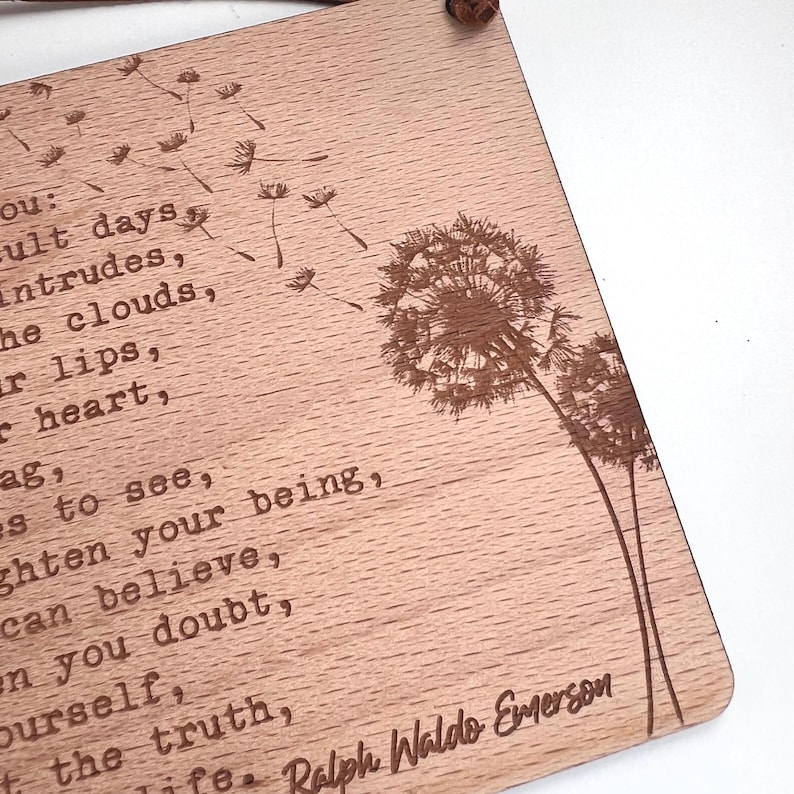 ou:
ult days,
intrudes,
he clouds,
ur lips,
r heart,
ag,
es to see,
ghten your being,
can believe,
en you doubt,
ourself,
t the truth,
life. Ralph Waldo Emerson